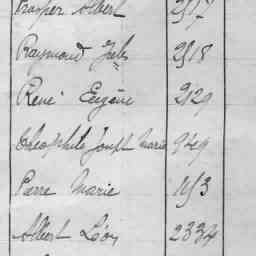 Prosper Albert 2517
Raymond Jules 2518
René Eugène 2129
Théophile Joseph Marie 949
Pierre Marie 1513
Albert Léon 2334